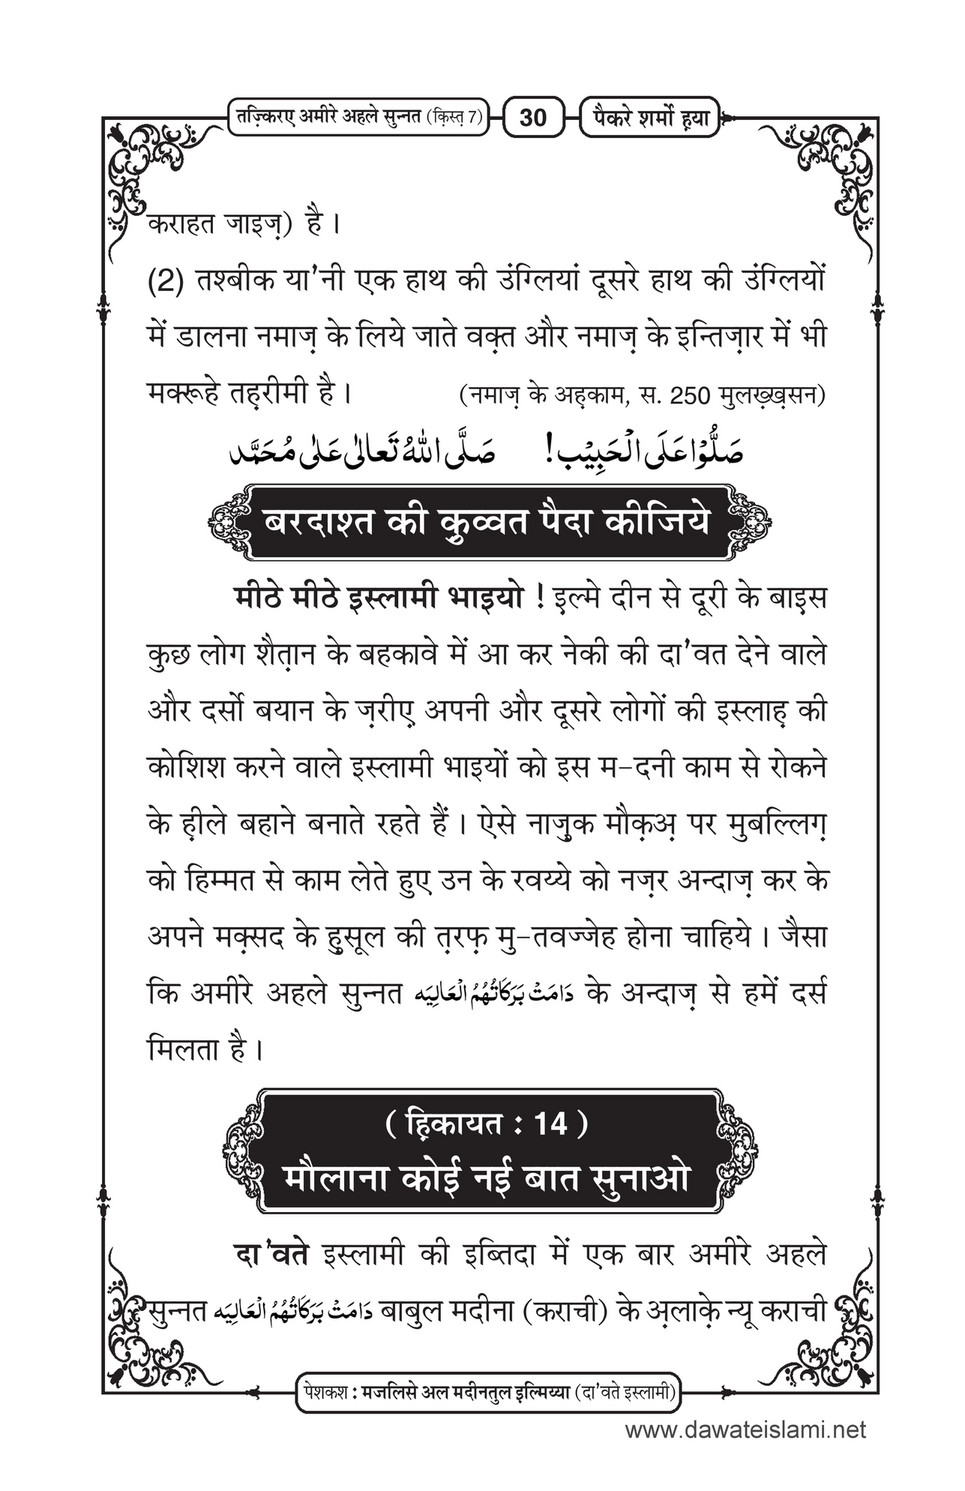 तज़्किरए अमीरे अहले सुन्नत (क़िस्त़ 7) 30 पैकरे शर्मो ह़या
कराहत जाइज़) है।
(2) तश्बीक या'नी एक हाथ की उंग्लियां दूसरे हाथ की उंग्लियों
में डालना नमाज़ के लिये जाते वक़्त और नमाज़ के इन्तिज़ार में भी
मक्रूहे तह़रीमी है। (नमाज़ के अह़काम, स. 250 मुलख़्ख़सन)
صَلُّوْا عَلَى الْحَبِيْب! صَلَّى اللهُ تَعَالٰى عَلٰى مُحَمَّد
बरदाश्त की कु़व्वत पैदा कीजिये
मीठे मीठे इस्लामी भाइयो ! इ़ल्मे दीन से दूरी के बाइ़स
कुछ लोग शैत़ान के बहकावे में आ कर नेकी की दा'वत देने वाले
और दर्सो बयान के ज़रीए़ अपनी और दूसरे लोगों की इस्लाह़ की
कोशिश करने वाले इस्लामी भाइयों को इस म-दनी काम से रोकने
के ह़ीले बहाने बनाते रहते हैं। ऐसे नाज़ुक मौक़अ़ पर मुबल्लिग़
को हिम्मत से काम लेते हुए उन के रवय्ये को नज़र अन्दाज़ कर के
अपने मक़्सद के हु़सूल की त़रफ़ मु-तवज्जेह होना चाहिये। जैसा
कि अमीरे अहले सुन्नत دَامَتْ بَرَكَاتُهُمُ الْعَالِيَه के अन्दाज़ से हमें दर्स
मिलता है।
( ह़िकायत : 14 )
मौलाना कोई नई बात सुनाओ
दा'वते इस्लामी की इब्तिदा में एक बार अमीरे अहले
सुन्नत دَامَتْ بَرَكَاتُهُمُ الْعَالِيَه बाबुल मदीना (कराची) के अ़लाक़े न्यू कराची
पेशकश : मजलिसे अल मदीनतुल इ़ल्मिय्या (दा'वते इस्लामी)
www.dawateislami.net